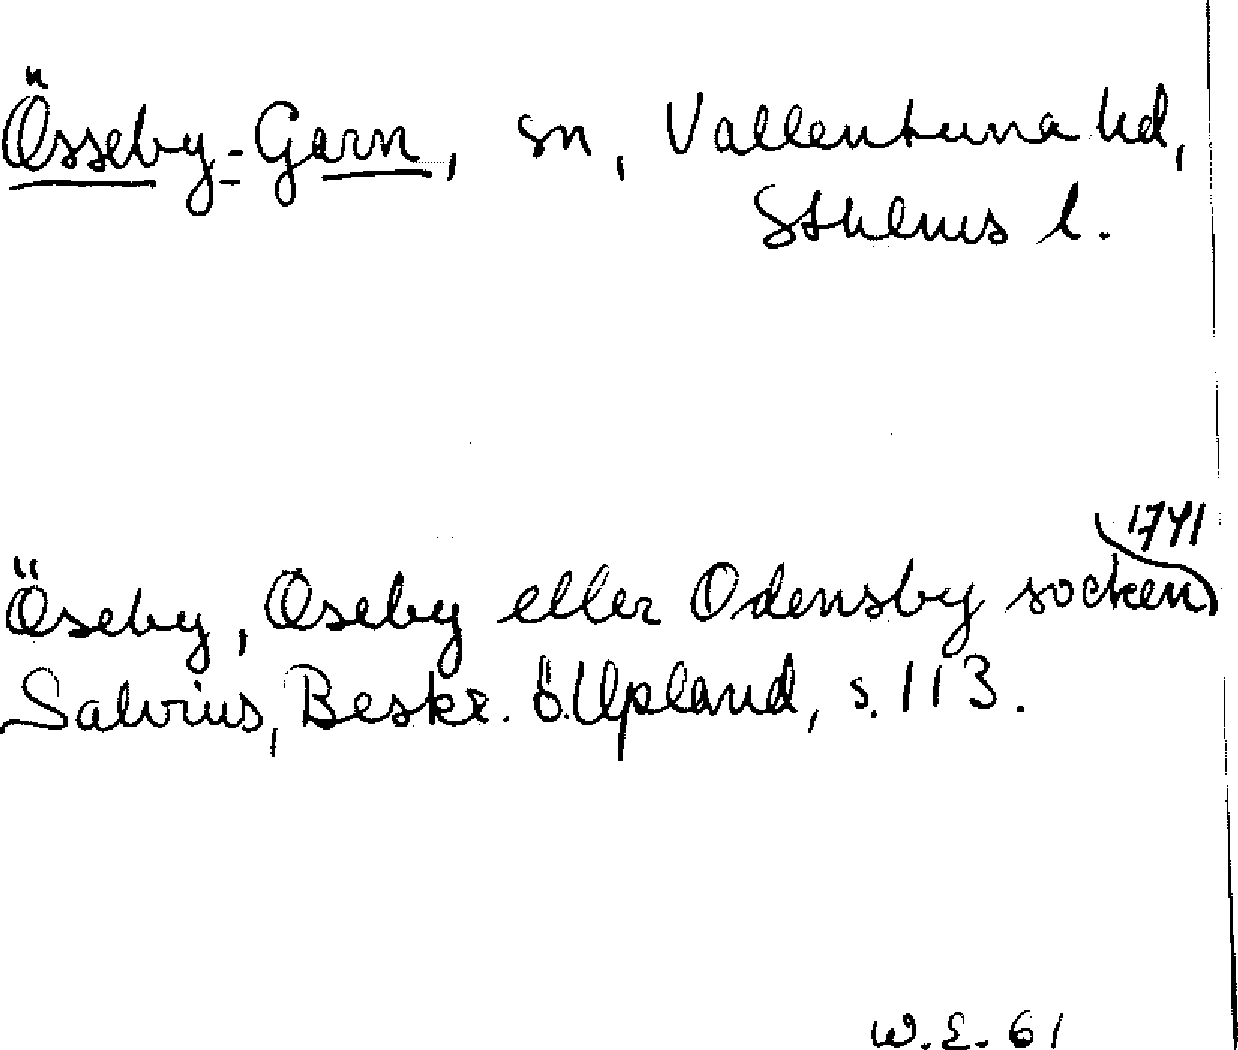 Össeby-Garn, sn, Vallentuna hd,
Sthlms l.
1741
Öseby, Oseby eller Odensby socken
Salvius, Beskr. ö. Upland, s. 113.
W. E. 61